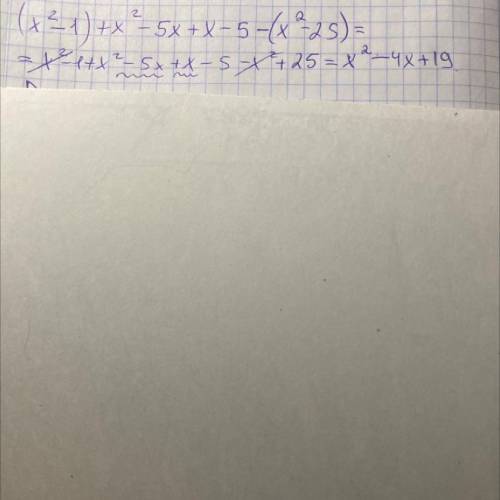 (x²-1)+x²-5x+x-5-(x²-25)=
=x²-1+x²-5x+x-5-x²+25=x²-4x+19